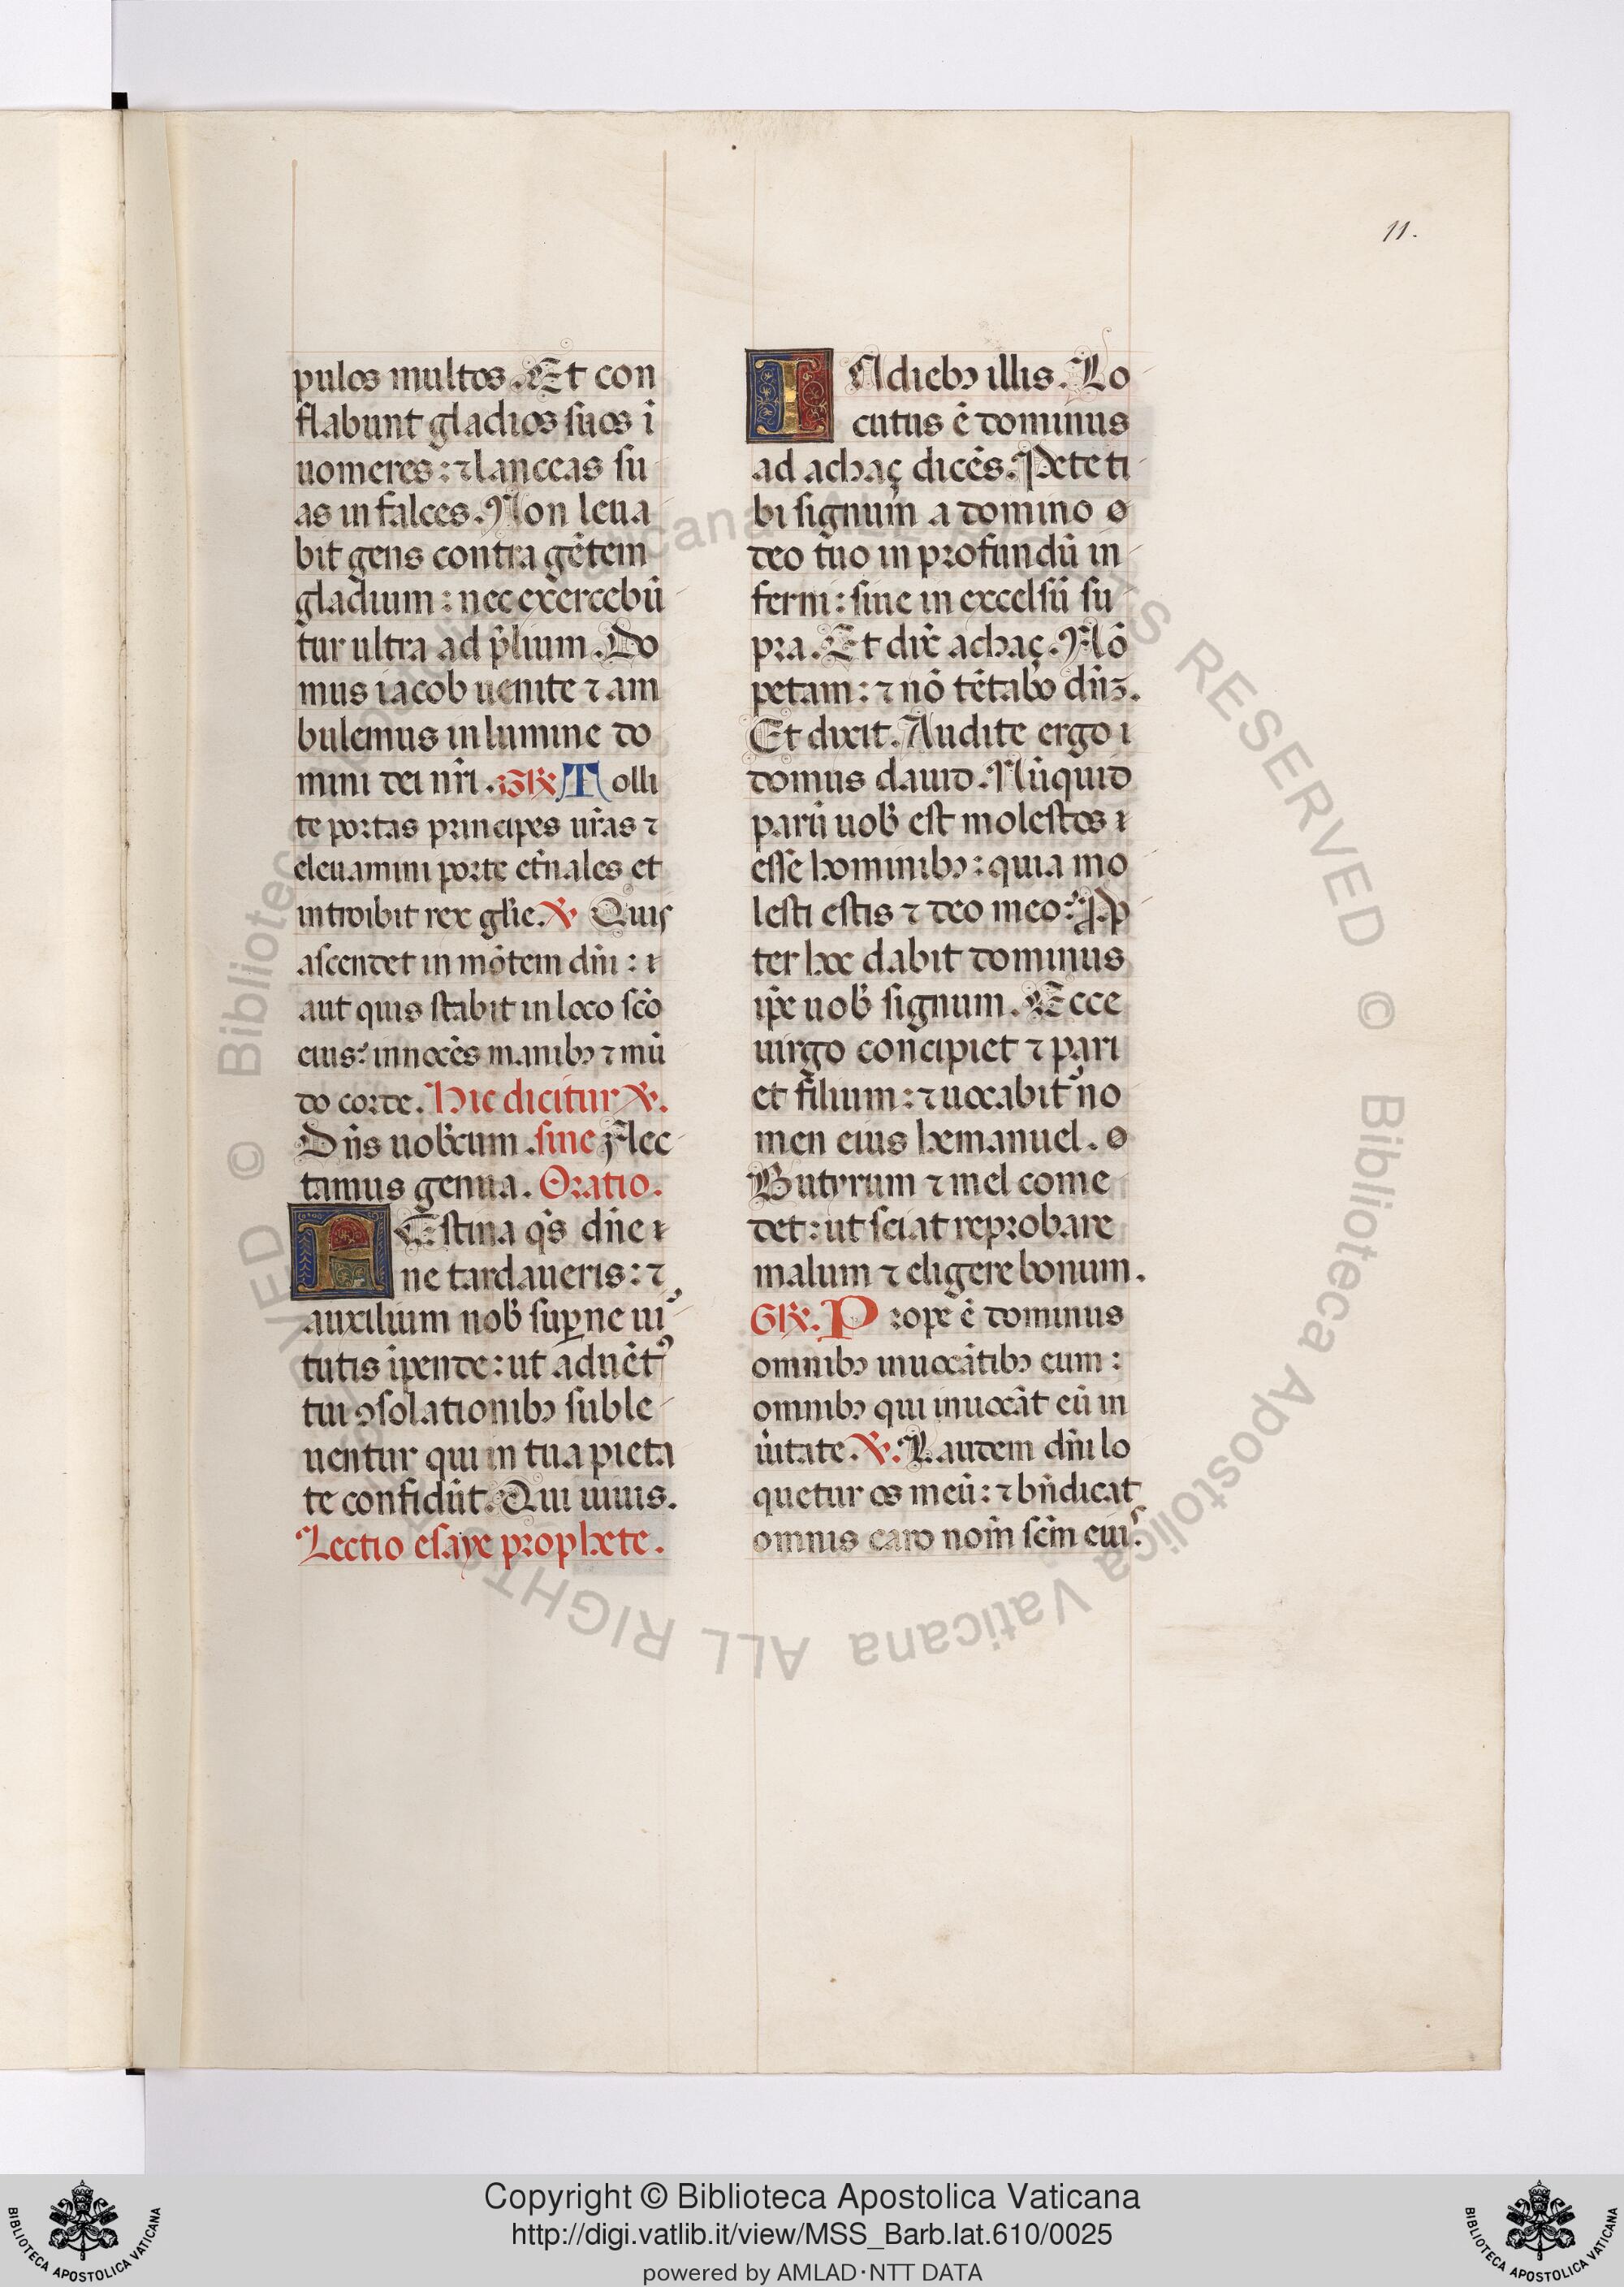 11.
pulos multos. Et con
flabunt gladios suos ī
uomeres: ⁊ lanceas su
as in falces. Non leua
bit gens contra gētem
gladium: nec exercebū
tur ultra ad p̄lium. Do
mus iacob uenite ⁊ am
bulemus in lumine do
mini dei nr̄i. GR. Tolli
te portas principes ur̄as ⁊
eleuamini porte et̄nales et
introibit rex gl̄ie. ℣. Quis
ascendet in mōtem dn̄i:
aut quis stabit in loco sc̄o
eius? innocēs manibꝫ ⁊ mū
do corde. Hic dicitur ℣.
Dn̄s uob̄cum. sine Flec
tamus genua. Oratio.
FEstina qs̄ dn̄e
ne tardaueris: ⁊
auxilium nob̄ suꝑne uir
tutis īpende: ut aduēt᷒
tui ꝯsolationibꝫ suble
uentur qui in tua pieta
te confidūt. Qui uiuis.
Lectio esaye prophete.
IN diebꝫ illis. Lo
cutus ē dominus
ad achaç dicēs. Pete ti
bi signum a domino
deo tuo in profundū in
ferni: siue in excelsū su
pra. Et dix̄ achaç. Nō
petam: ⁊ nō tētabo dn̄ꝫ.
Et dixit. Audite ergo
domus dauid. Nūquid
parū uob̄ est molestos
esse hominibꝫ: quia mo
lesti estis ⁊ deo meo? Pꝓ
ter hoc dabit dominus
ip̄e uob̄ signum. Ecce
uirgo concipiet ⁊ pari
et filium: ⁊ uocabit᷒ no
men eius hemanuel.
Butyrum ⁊ mel come
det: ut sciat reprobare
malum ⁊ eligere bonum.
GR. Prope ē dominus
omnibꝫ inuocātibꝫ eum:
omnibꝫ qui inuocāt eū in
ūitate. ℣. Laudem dn̄i lo
quetur os meū: ⁊ bn̄dicat
omnis caro nom̄ scm̄ eius.
© Biblioteca Apostolica Vaticana ALL RIGHTS RESERVED
© Biblioteca Apostolica Vaticana ALL RIGHTS RESERVED
Copyright © Biblioteca Apostolica Vaticana
http://digi.vatlib.it/view/MSS_Barb.lat.610/0025
powered by AMLAD·NTT DATA
BIBLIOTECA APOSTOLICA VATICANA
BIBLIOTECA APOSTOLICA VATICANA